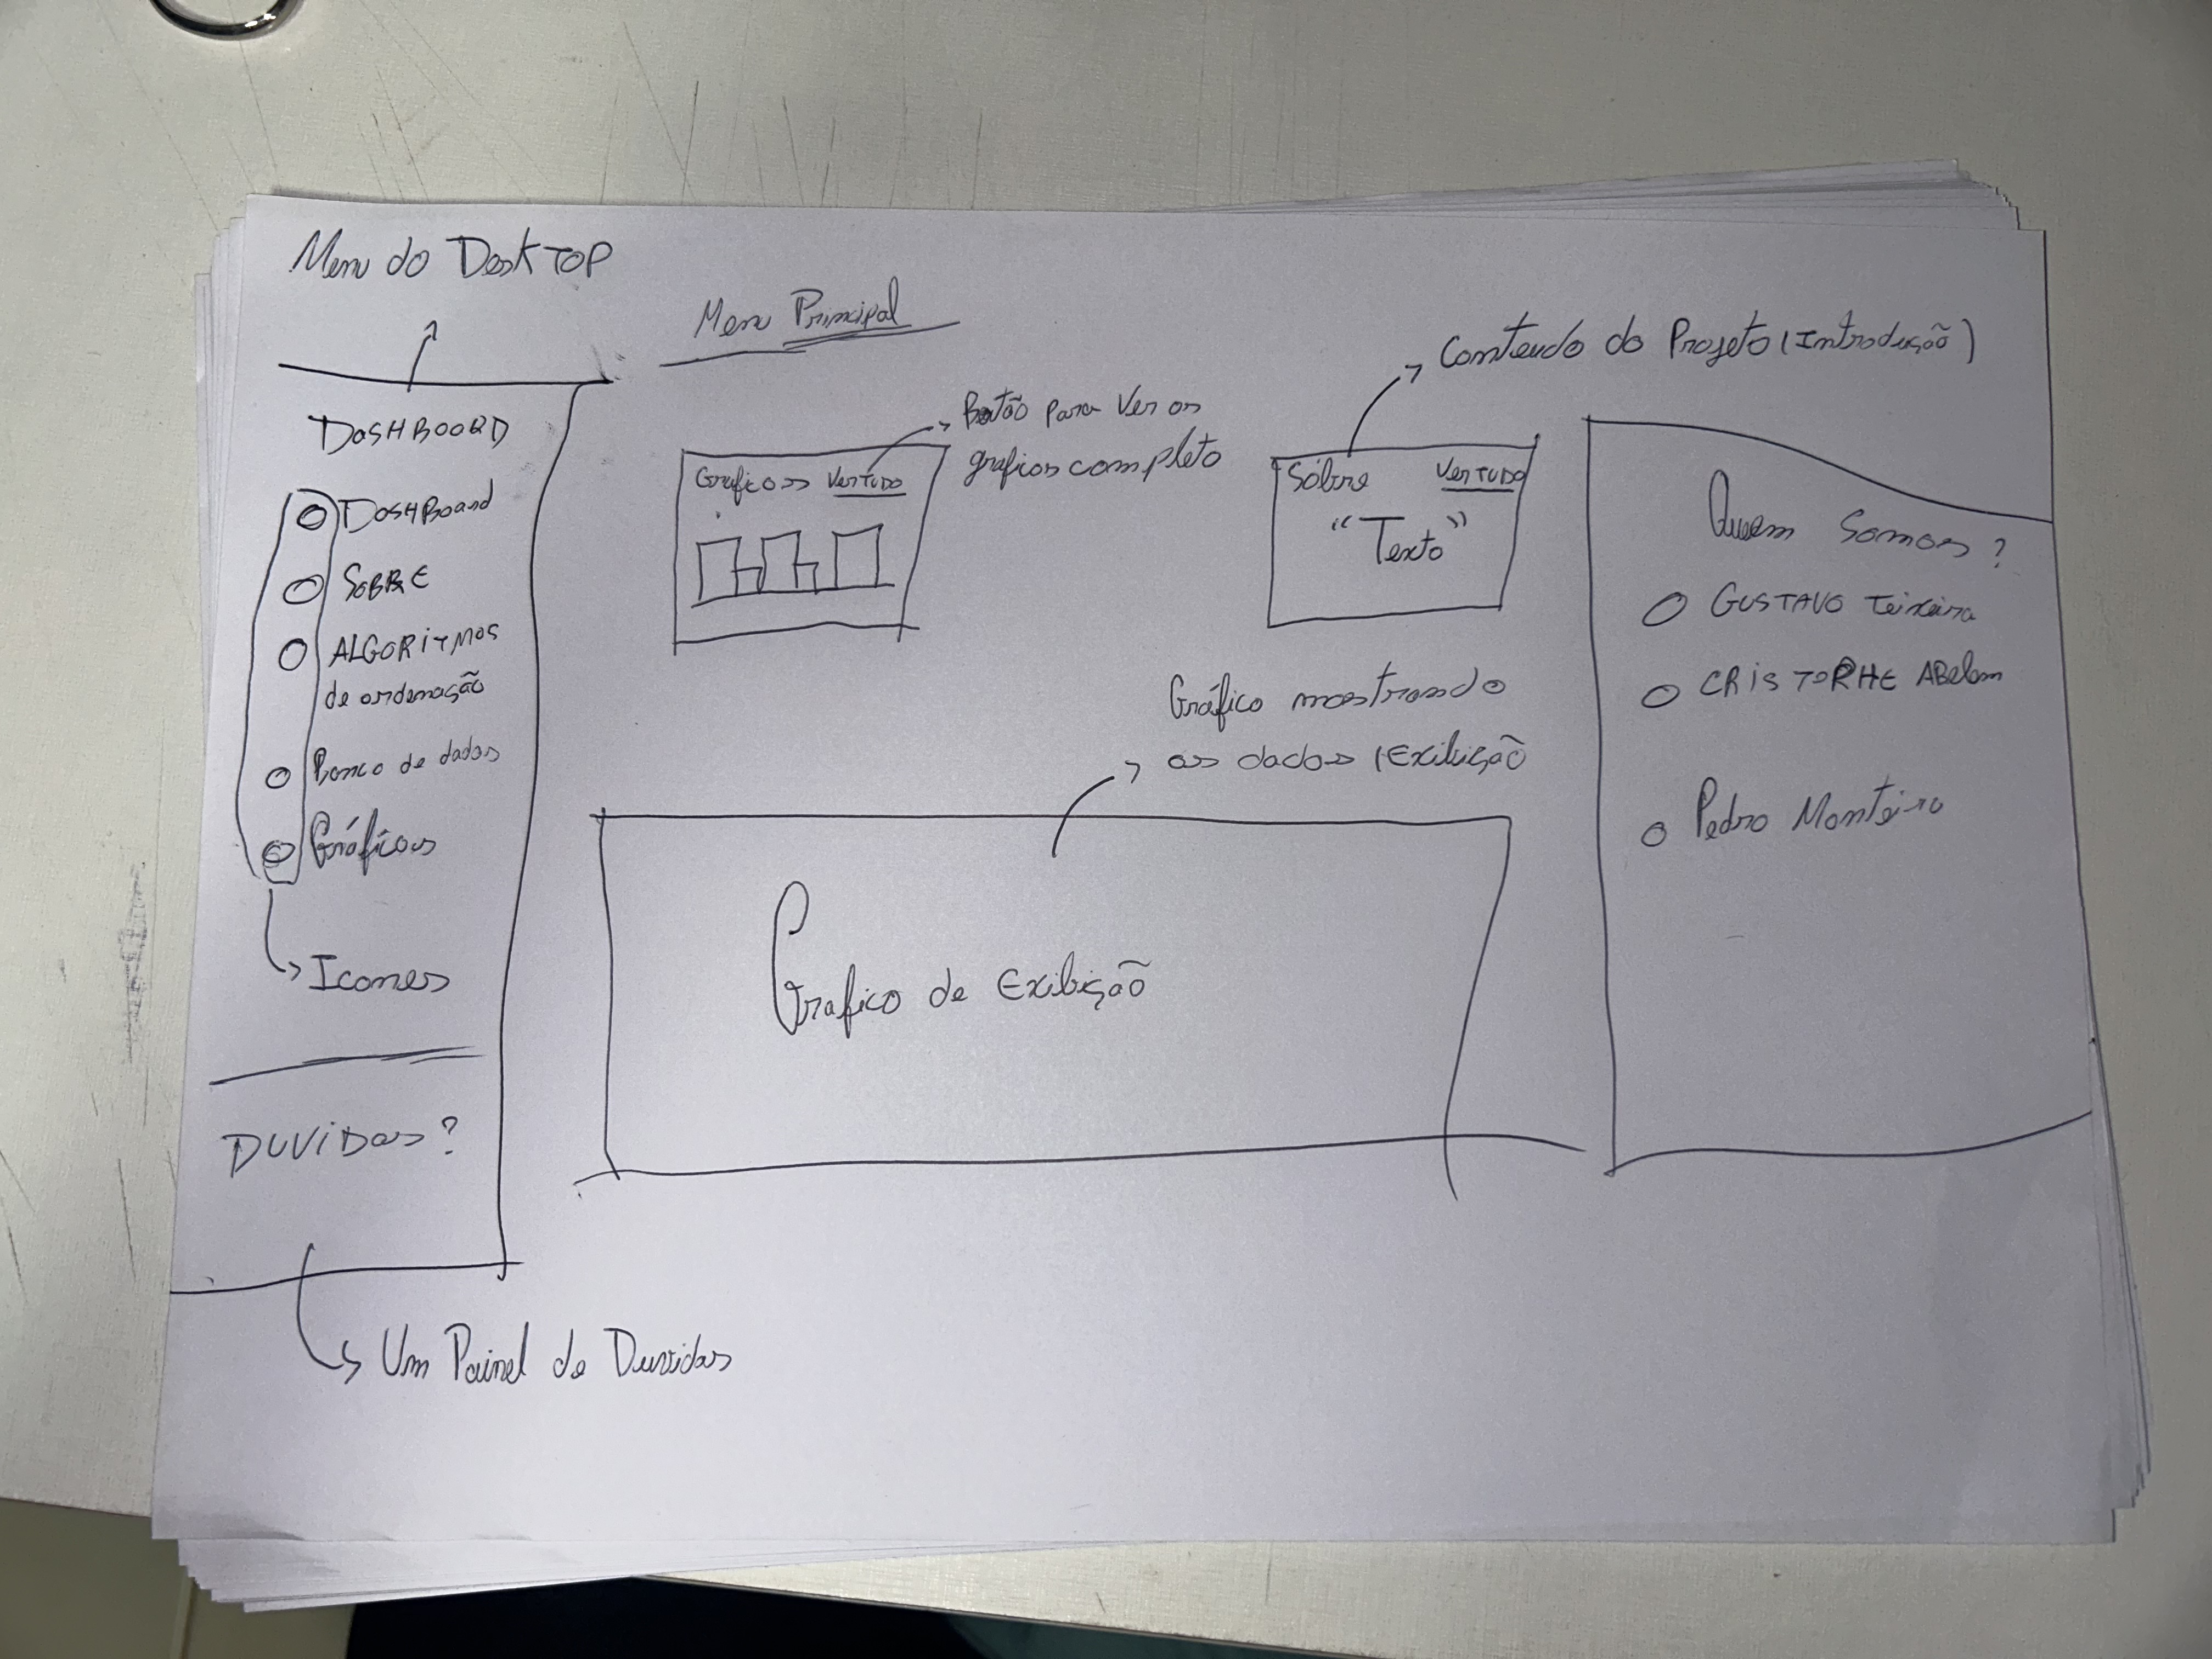 Menu do DeskTOP
DASHBOORD
DASHBoard
SOBRE
ALGORITMOS
de ordenação
Banco de dados
Gráficos
Icones
DUVIDas?
Um Painel de Duvidas
Menu Principal
Graficos VerTudo
Botão para ver os
graficos completo
Sobre VerTudo
"Texto"
Conteudo do Projeto (Introdução)
Gráfico mostrando
os dados (Exibição
Grafico de Exibição
Quem Somos?
GUSTAVO Teixeira
CRISTOPHE ABelam
Pedro Monteiro